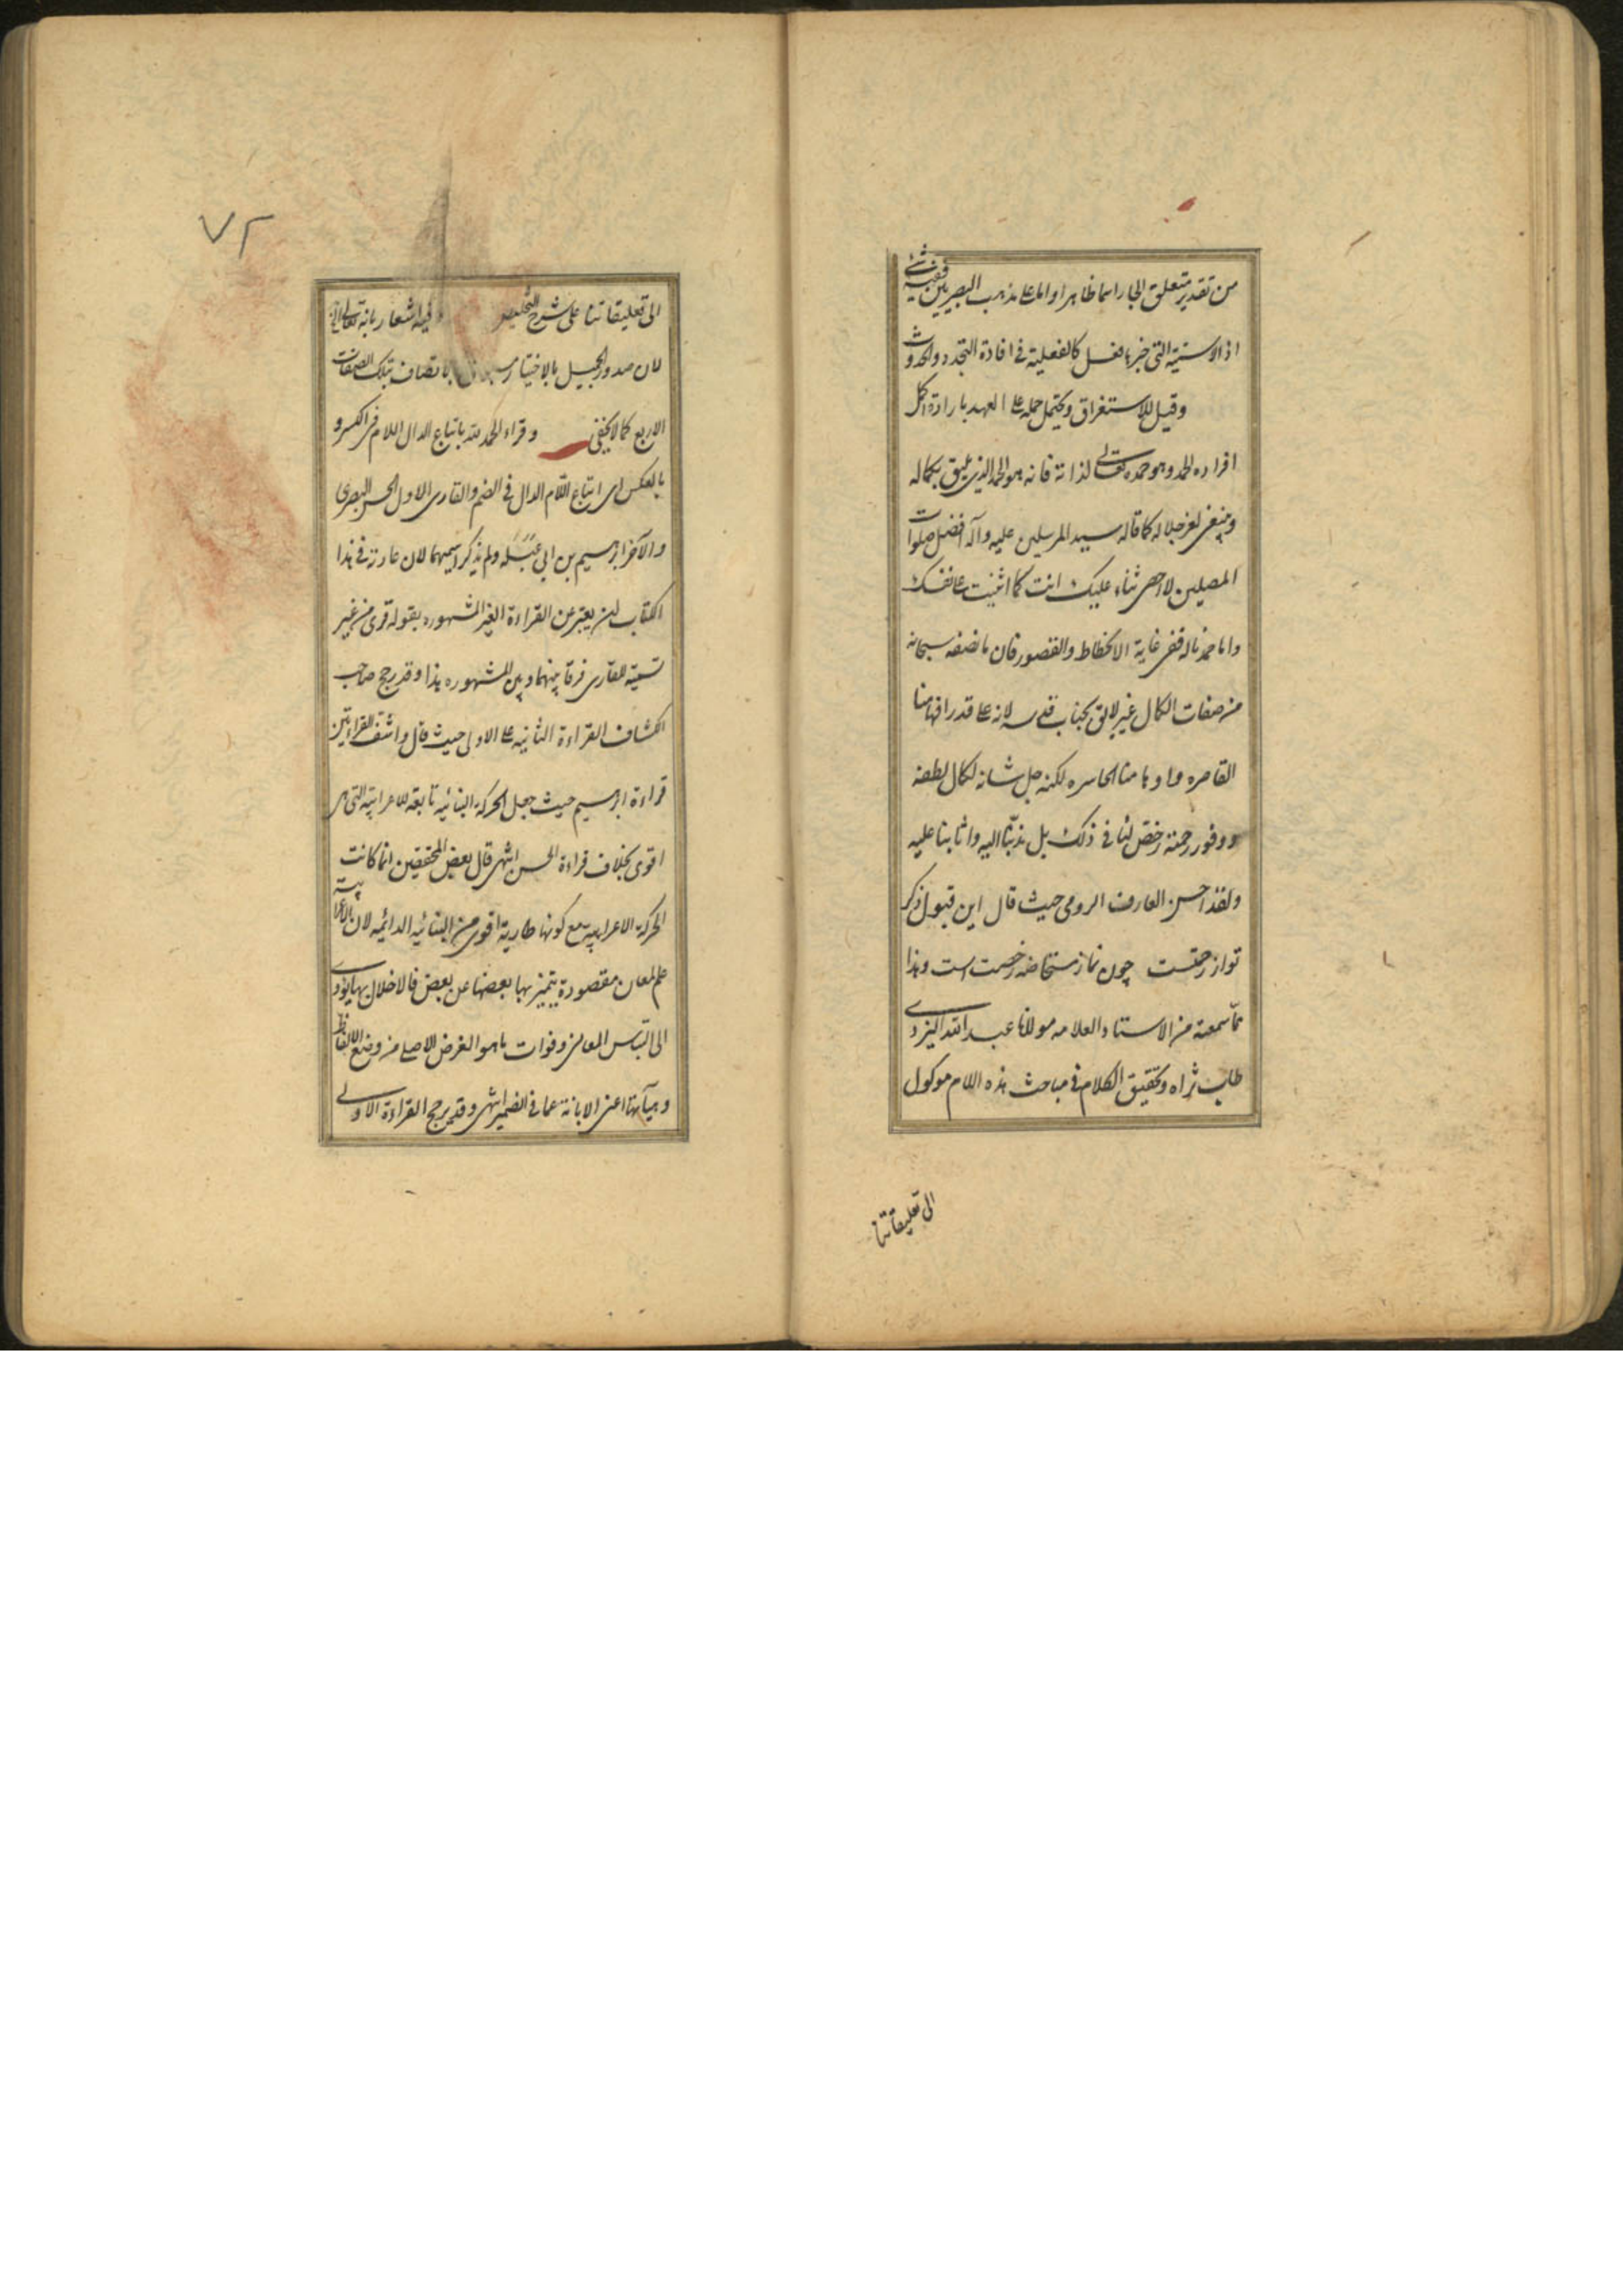 من تقدير متعلق الجار اسما ظاهر او اما على مذهب البصريين ففيه شئ
اذ الاسمية التى خبرها فعل كالفعلية فى افادة التجدد والحدوث
وقيل للاستغراق ويحتمل حمله على العهد بارادة اكمل
افراده الحمد وهو حمده تعالى لذاته فانه هو الحمد الذى يليق بكماله
وينبغى لعز جلاله كما قاله سيد المرسلين عليه وآله افضل صلوات
المصلين لا احصى ثناء عليك انت كما اثنيت على نفسك
واما حمدنا له ففى غاية الانحطاط والقصور فان ما نصفه سبحانه
من صفات الكمال غير لايق بجناب قدسه لانه على قدر افهامنا
القاصره واوهامنا الحاسره لكنه جل شانه لكمال لطفه
ووفور رحمته رخص لنا فى ذلك بل ندبنا اليه واثابنا عليه
ولقد احسن العارف الرومى حيث قال اين قبول ذكر
تو از رحمتست چون نماز مستحاضه رخصت است وهذا
مما سمعته من الاستاد العلامه مولانا عبد الله اليزدى
طاب ثراه وتحقيق الكلام فى مباحث هذه اللام موكول
الى تعليقاتنا
٧٢
الى تعليقاتنا على شرح التلخيص وفيه اشعار بانه تعالى
لان صدور الجميل بالاختيار الاتصاف بتلك الصفات
الاربع كما لا يخفى وقراء الحمد لله باتباع الدال اللام فى الكسر و
بالعكس اى اتباع اللام الدال فى الضم والقارى الاول الحسن البصرى
والآخر ابرهيم بن ابى عبلة ولم يذكر اسميهما لان عادته فى هذا
الكتاب ان يعبر عن القراءة الغير المشهوره بقوله قرى من غير
تسمية القارى فرقا بينهما وبين المشهوره هذا وقد رجح صاحب
الكشاف القراءة الثانيه على الاولى حيث قال واشف القراءتين
قراءة ابرهيم حيث جعل الحركة البنائيه تابعة للاعرابية التى هى
اقوى بخلاف قراءة الحسن انتهى قال بعض المحققين انما كانت
الحركة الاعرابية مع كونها طارية اقوى من البنائيه الدائميه لان الاعرابية
علم لمعان مقصودة يتميز بها بعضها عن بعض فالاخلال بها يؤدى
الى التباس المعانى وفوات ما هو الغرض الاصلى من وضع الالفاظ
وهيآتها اعنى الابانة عما فى الضمير انتهى وقد يرجح القراءة الاولى